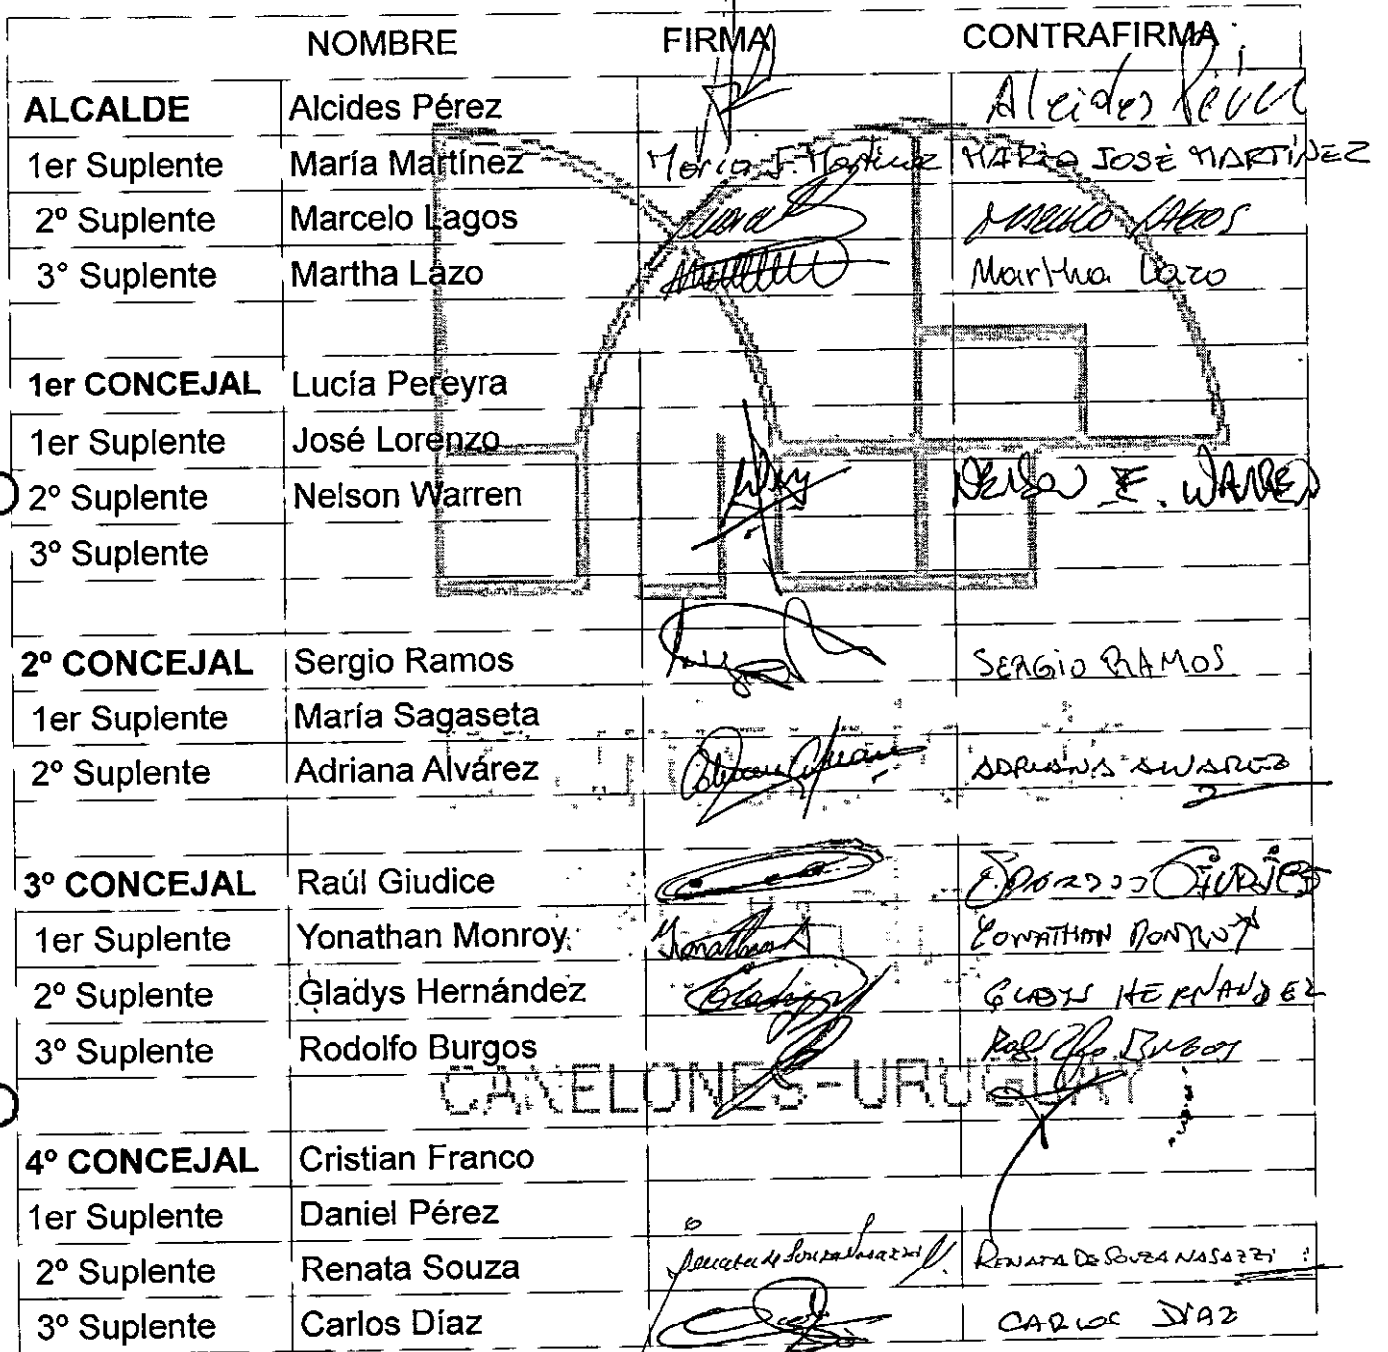 NOMBRE FIRMA CONTRAFIRMA
ALCALDE Alcides Pérez Alcides Pérez
1er Suplente María Martínez María J. Martínez MARÍA JOSÉ MARTÍNEZ
2º Suplente Marcelo Lagos MARCELO LAGOS
3° Suplente Martha Lazo Martha Lazo
1er CONCEJAL Lucía Pereyra
1er Suplente José Lorenzo
2º Suplente Nelson Warren NELSON E. WARREN
3º Suplente
2º CONCEJAL Sergio Ramos SERGIO RAMOS
1er Suplente María Sagaseta
2º Suplente Adriana Alvárez ADRIANA ALVAREZ
3º CONCEJAL Raúl Giudice GIUDICE
1er Suplente Yonathan Monroy Yonathan YONATHAN MONROY
2º Suplente Gladys Hernández Gladys GLADYS HERNANDEZ
3º Suplente Rodolfo Burgos Rodolfo Burgos
CANELONES-URUGUAY
4º CONCEJAL Cristian Franco
1er Suplente Daniel Pérez
2º Suplente Renata Souza Renata de Souza Nasazzi RENATA DE SOUZA NASAZZI
3º Suplente Carlos Díaz CARLOS DÍAZ